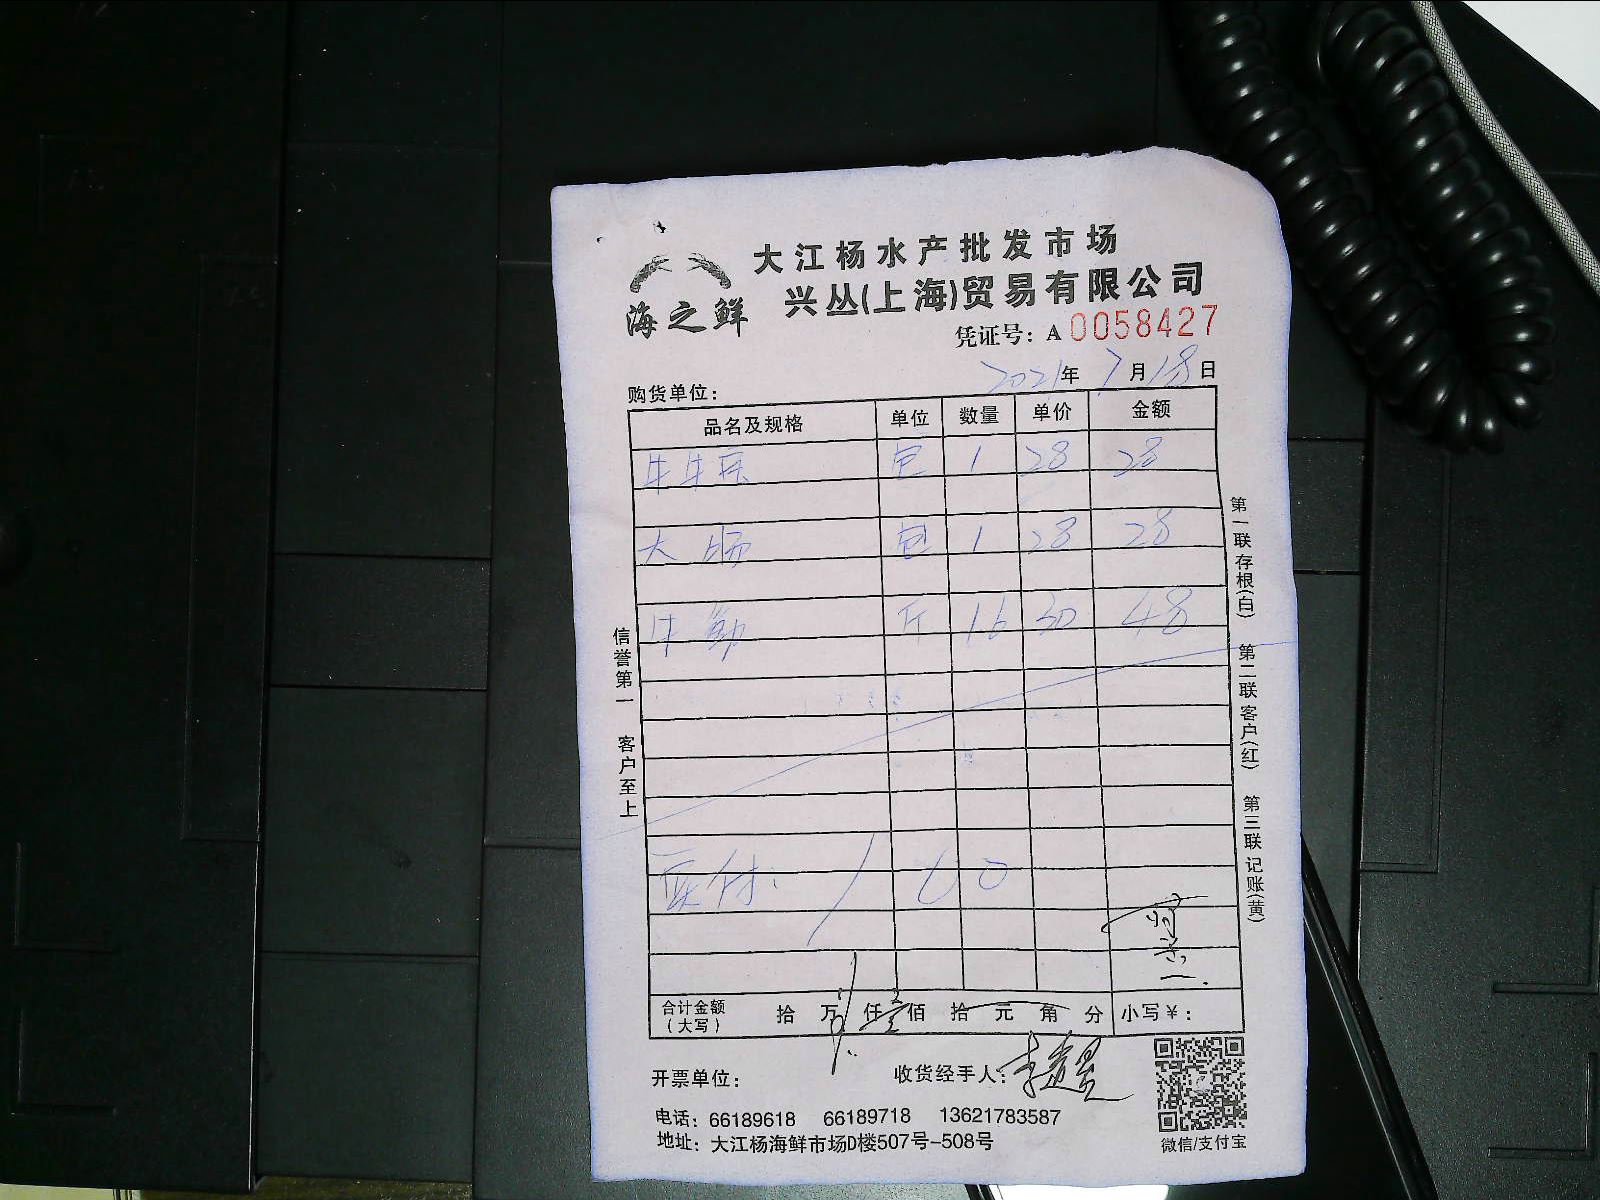 大江杨水产批发市场
海之鲜
兴丛(上海)贸易有限公司
凭证号：A 0058427
购货单位：
2021年 7月18日
品名及规格 单位 数量 单价 金额
包 1 28 28
大肠 包 1 28 28
牛 斤 16 30 48
实付：
合计金额（大写） 拾 万 仟 壹佰 拾 元 角 分 小写￥：
开票单位： 收货经手人：
电话：66189618 66189718 13621783587
地址：大江杨海鲜市场D楼507号-508号
微信/支付宝
信誉第一 客户至上
第一联存根(白) 第二联客户(红) 第三联记账(黄)